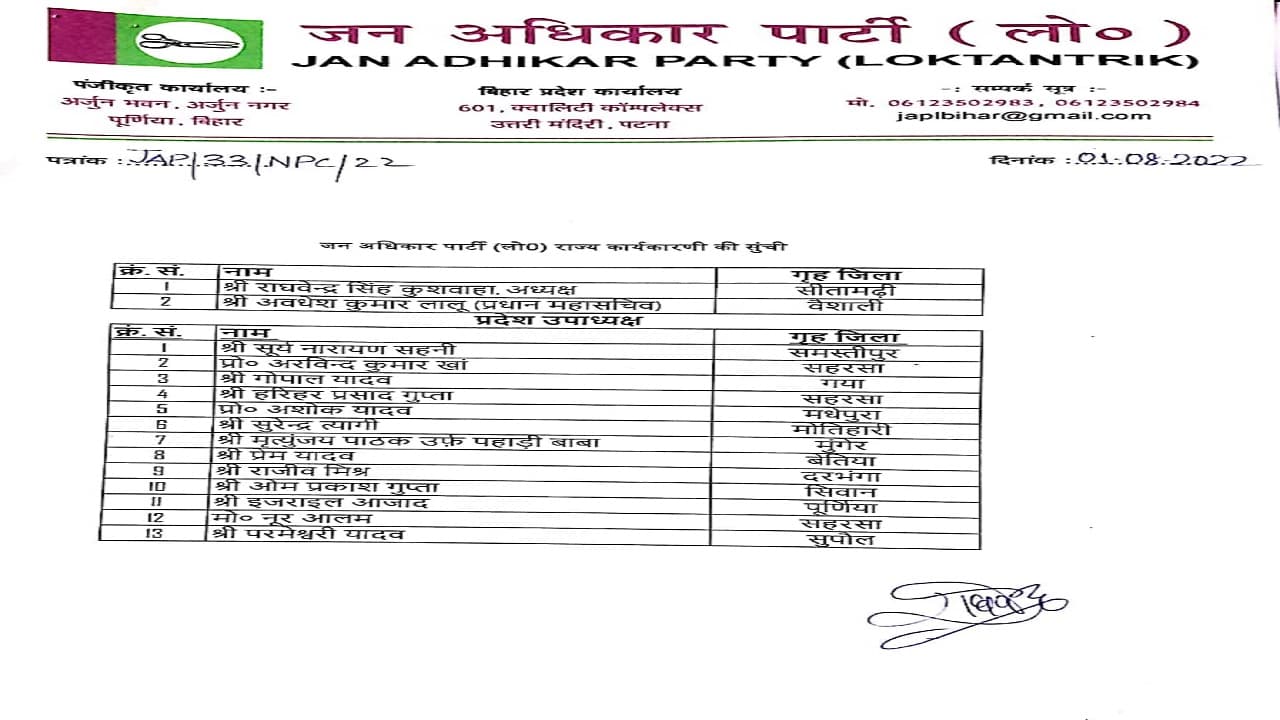 जन अधिकार पार्टी ( लो० )
JAN ADHIKAR PARTY (LOKTANTRIK)
पंजीकृत कार्यालय :-
अर्जुन भवन, अर्जुन नगर
पूर्णिया, बिहार
बिहार प्रदेश कार्यालय
601, क्वालिटी कॉम्पलेक्स
उत्तरी मंदिरी, पटना
-: सम्पर्क सूत्र :-
मो. 06123502983, 06123502984
japlbihar@gmail.com
पत्रांक : JAP/33/NPC/22
दिनांक : 01.08.2022
जन अधिकार पार्टी (लो0) राज्य कार्यकारणी की सुंची
क्रं. सं. नाम गृह जिला
1 श्री राघवेन्द्र सिंह कुशवाहा, अध्यक्ष सीतामढ़ी
2 श्री अवधेश कुमार लालू (प्रधान महासचिव) वैशाली
प्रदेश उपाध्यक्ष
क्रं. सं. नाम गृह जिला
1 श्री सूर्य नारायण सहनी समस्तीपुर
2 प्रो० अरविन्द कुमार खां सहरसा
3 श्री गोपाल यादव गया
4 श्री हरिहर प्रसाद गुप्ता सहरसा
5 प्रो० अशोक यादव मधेपुरा
6 श्री सुरेन्द्र त्यागी मोतिहारी
7 श्री मृत्युंजय पाठक उर्फ़ पहाड़ी बाबा मुंगेर
8 श्री प्रेम यादव बेतिया
9 श्री राजीव मिश्र दरभंगा
10 श्री ओम प्रकाश गुप्ता सिवान
11 श्री इजराइल आजाद पूर्णिया
12 मो० नूर आलम सहरसा
13 श्री परमेश्वरी यादव सुपौल